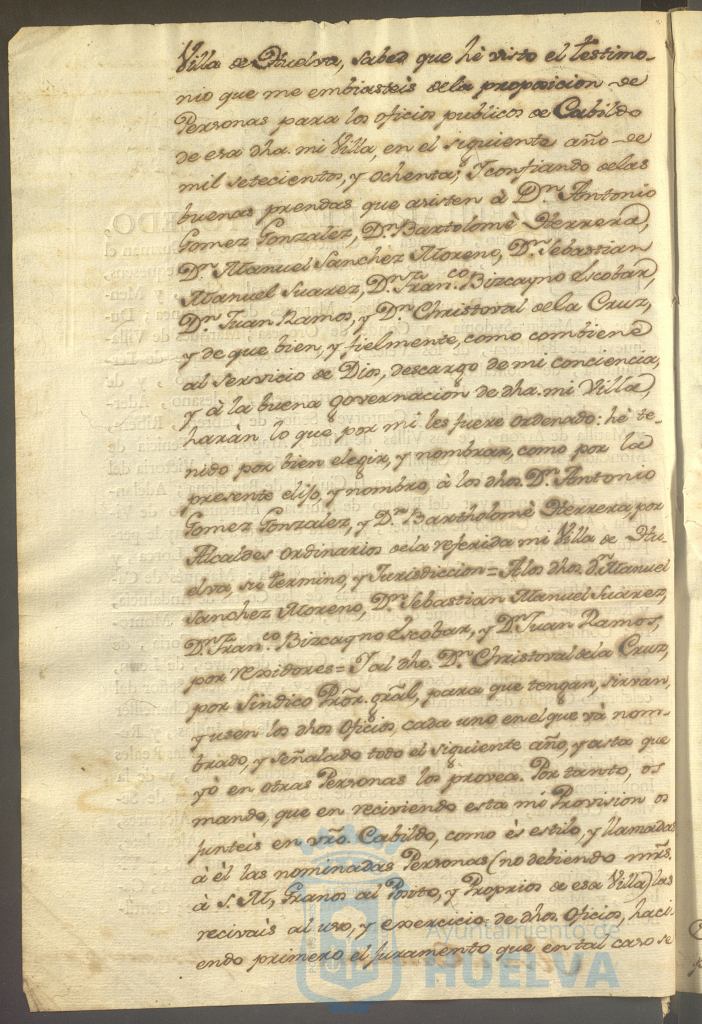 Villa de Huelva, sabed que hè visto el testimo-
nio que me embiasteis de la proposicion de
Personas para los oficios publicos de Cabildo
de esa dha. mi Villa, en el siguiente año de
mil setecientos, y ochenta; Y confiando de las
buenas prendas que asisten à Dn. Antonio
Gomez Gonzalez, Dn. Bartolomè Herrera,
Dn. Manuel Sanchez Moreno, Dn. Sebastian
Manuel Suarez, Dn. Franco. Bizcayno Escobar,
Dn. Juan Ramos, y Dn. Christoval de la Cruz,
y de que bien, y fielmente, como combiene
al servicio de Dios, descargo de mi conciencia,
y à la buena governacion de dha. mi Villa,
haràn lo que por mi les fuere ordenado: hè te-
nido por bien elegir, y nombrar, como por la
presente elijo, y nombro, à los dhos. Dn. Antonio
Gomez Gonzalez, y Dn. Bartholomè Herrera, por
Alcaldes ordinarios de la referida mi Villa de Hu-
elva, su termino, y Jurisdiccion= A los dhos. Dn. Manuel
Sanchez Moreno, Dn. Sebastian Manuel Suàrez,
Dn. Franco. Bizcayno Escobar, y Dn. Juan Ramos,
por rexidores= Y al dho. Dn. Christoval de la Cruz,
por Sindico Pròr. gràl, para que tengan, sirvan,
y usen los dhos oficios, cada uno en el que và nom-
brado, y señalado todo el siguiente año, y asta que
yò en otras Personas los provea. Por tanto, os
mando, que en reciviendo esta mi Provision os
junteis en vrò. Cabildo, como ès estilo, y llamadas
à èl las nominadas Personas (no debiendo mrs.
à S. M, Granos al Posito, y Proprios de esa Villa) las
recivais al uso, y exercicio de dhos. Oficios, haci-
endo primero el juramento que en tal caso se
Ayuntamiento de
HUELVA